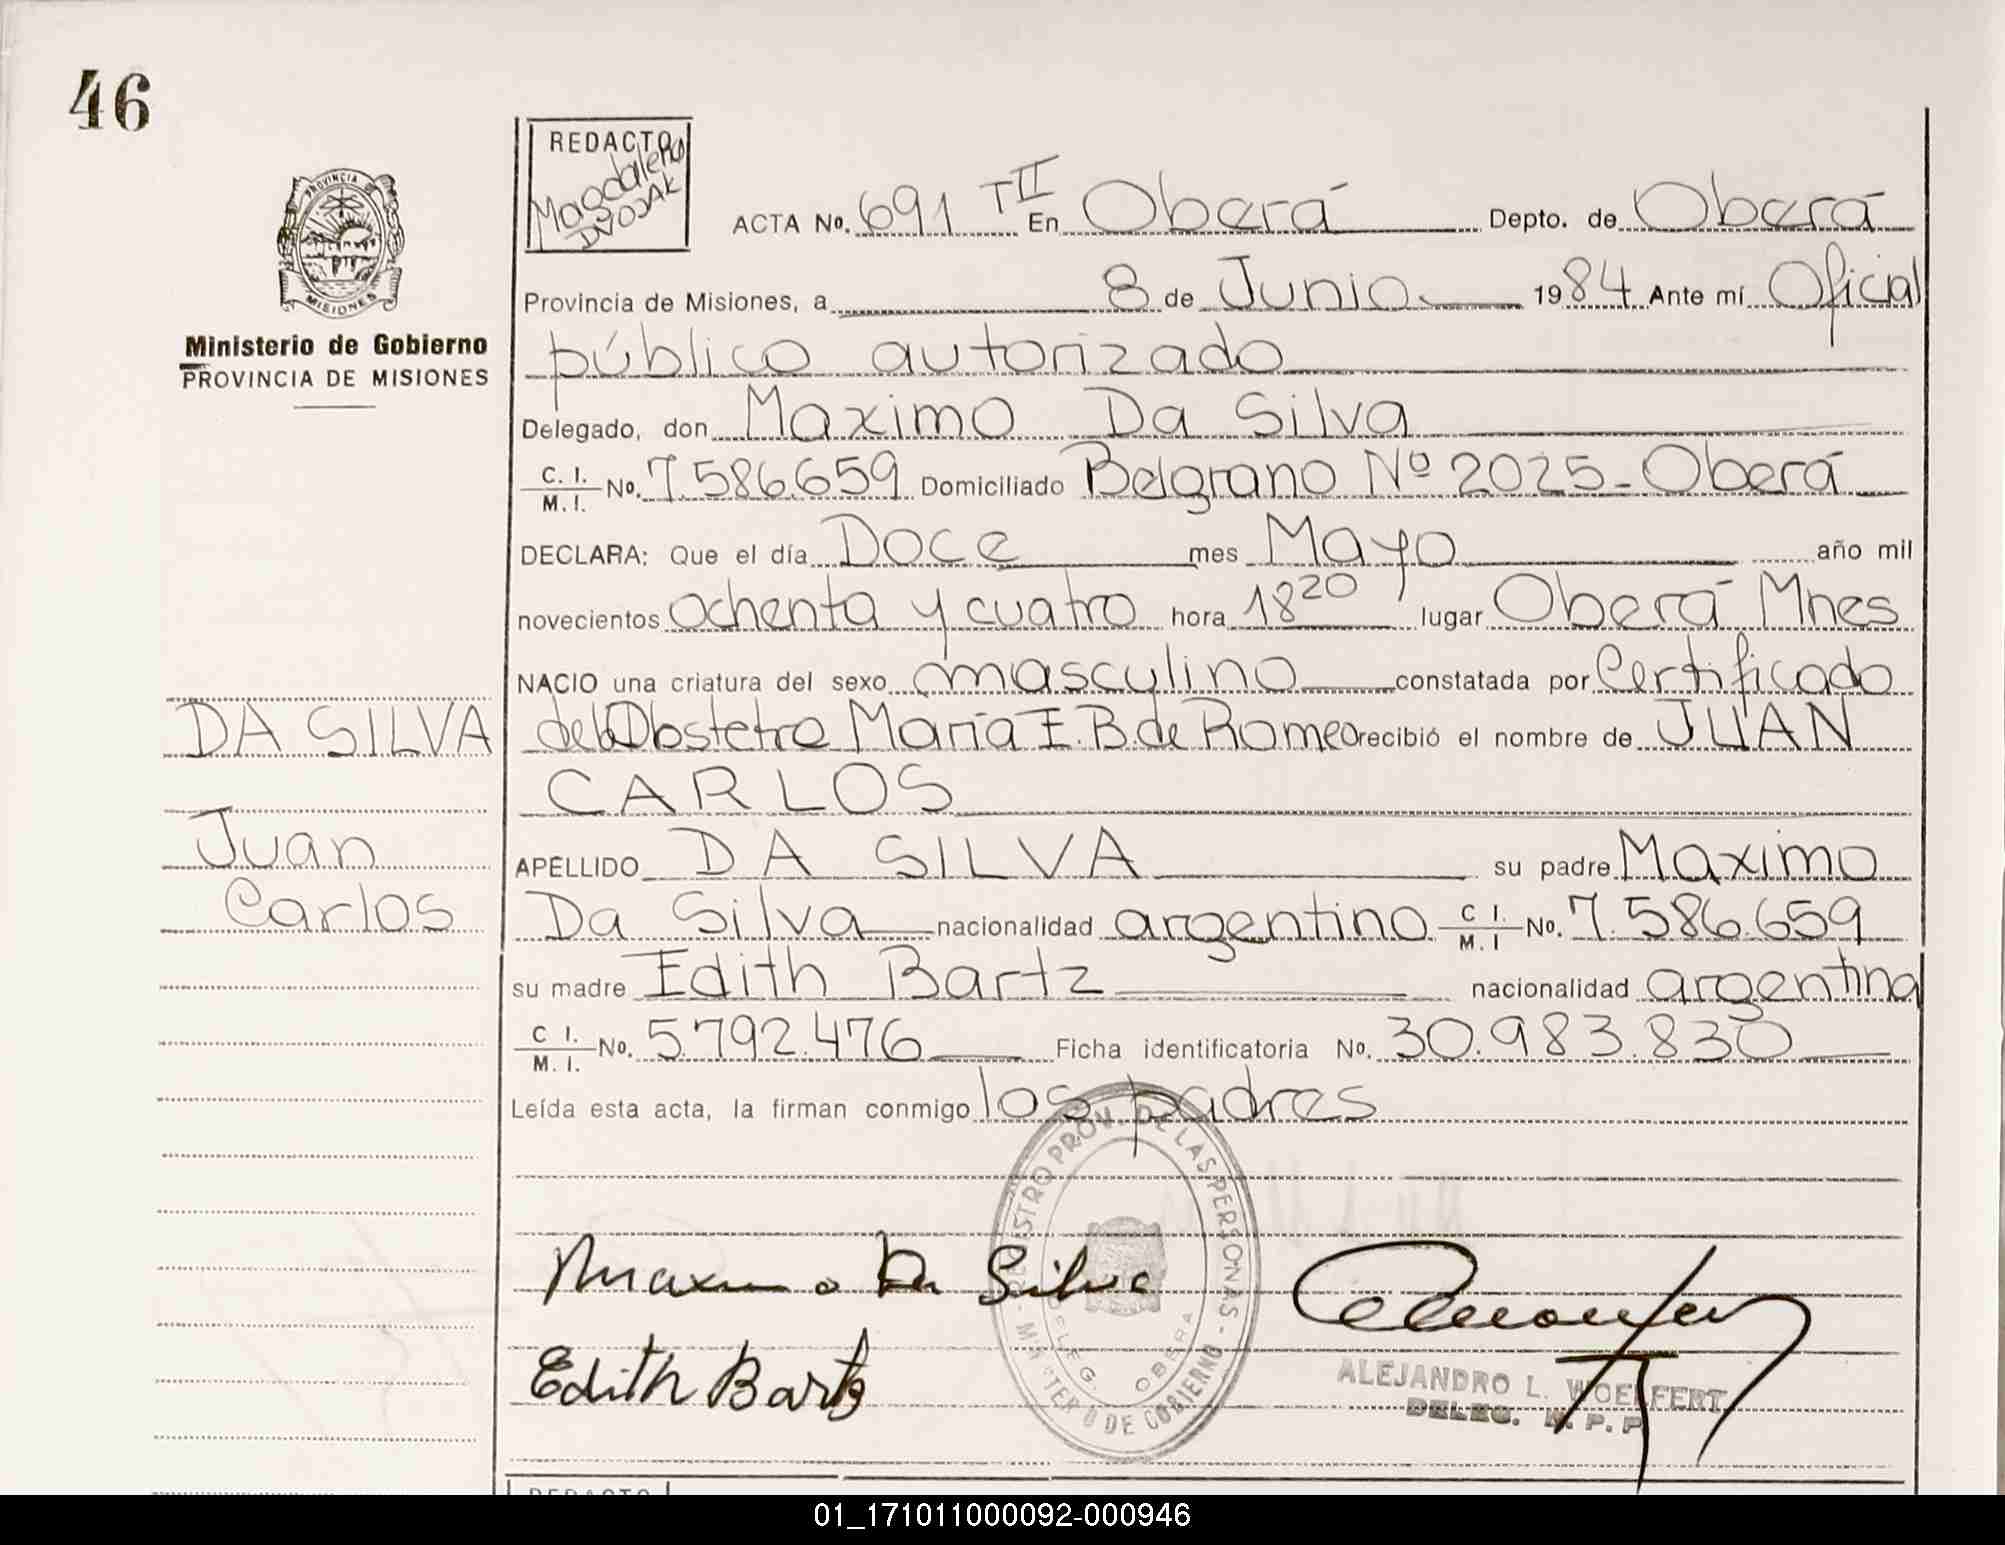 46
REDACTO
Magdalena
DVOJAK
PROVINCIA DE
MISIONES
Ministerio de Gobierno
PROVINCIA DE MISIONES
ACTA No. 691 TII En Oberá Depto. de Oberá
Provincia de Misiones, a 8 de Junio 1984 Ante mí Oficial
público autorizado
Delegado, don Maximo Da Silva
C. I. / M. I. No. 7.586.659 Domiciliado Belgrano Nº 2025 - Oberá
DECLARA: Que el día Doce mes Mayo año mil
novecientos ochenta y cuatro hora 18 20 lugar Oberá Mnes
NACIO una criatura del sexo masculino constatada por Certificado
de la Obstetra María E. B. de Romeo recibió el nombre de JUAN
CARLOS
APELLIDO DA SILVA su padre Maximo
Da Silva nacionalidad argentino C I. / M. I No. 7.586.659
su madre Edith Bartz nacionalidad argentina
C I. / M. I. No. 5.792.476 Ficha identificatoria No. 30.983.830
Leída esta acta, la firman conmigo los padres
DA SILVA
Juan
Carlos
Maximo Da Silva
Edith Bartz
REGISTRO PROV. DE LAS PERSONAS - MINISTERIO DE GOBIERNO -
DELEG. OBERA
ALEJANDRO L. WOELFERT
DELEG. R. P. P.
REDACTO
01_171011000092-000946